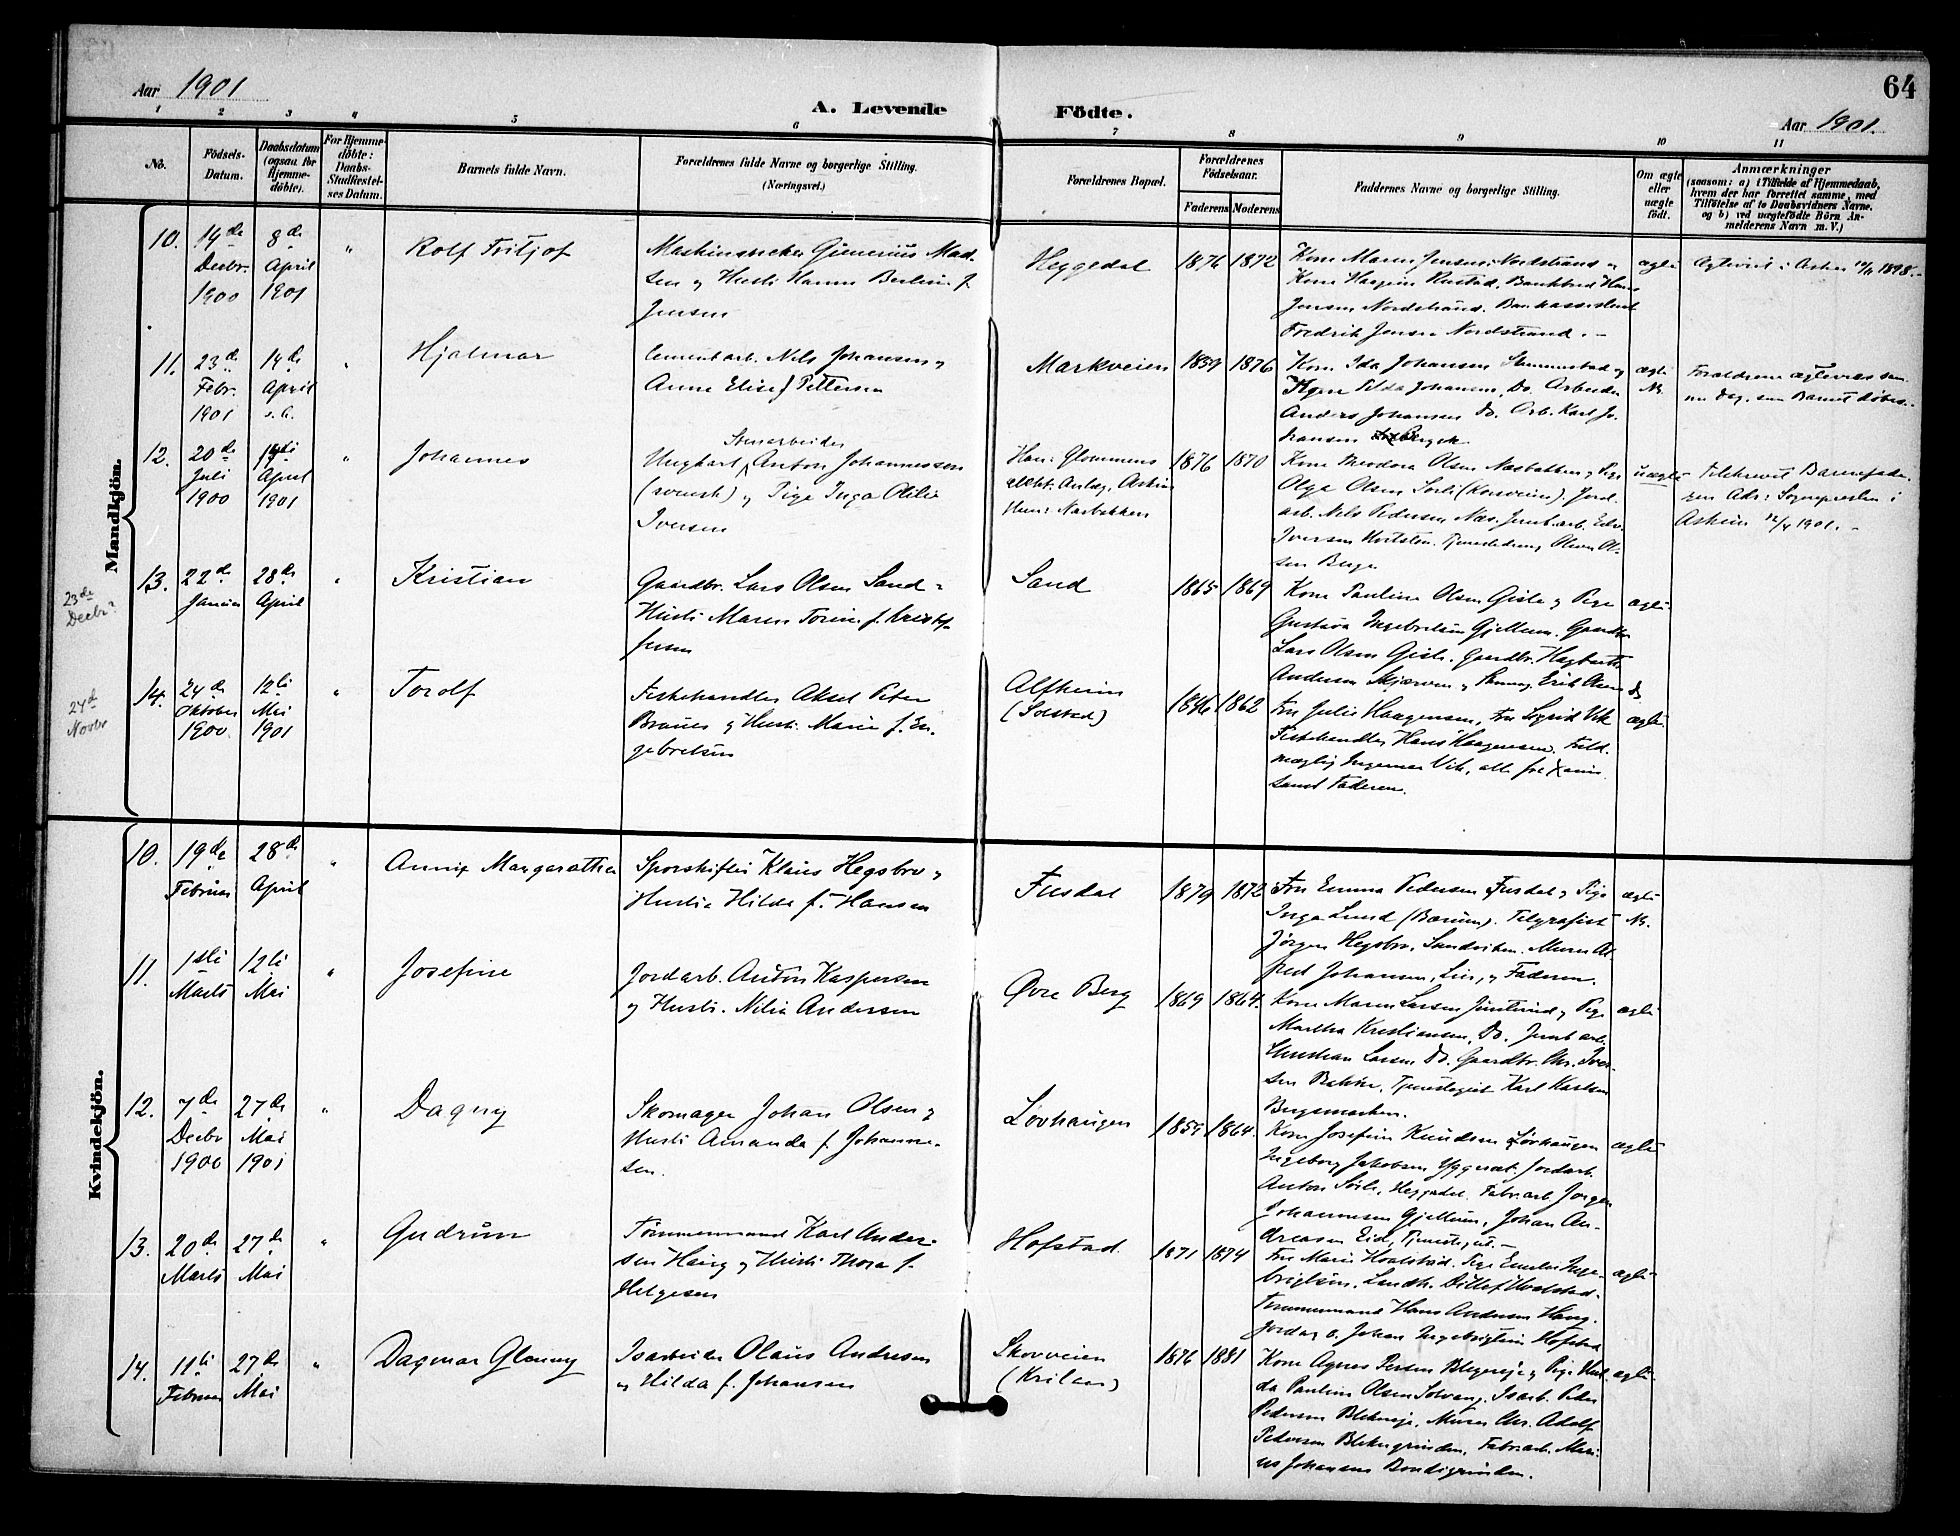 64
Aar 1901
A. Levende Födte.
Aar 1901.
1 2 3 4 5 6 7 8 9 10 11
No.
Födsels-
Datum.
Daabsdatum
(ogsaa for
Hjemme-
döbte).
For Hjemme-
döbte:
Daabs-
Stadfæstel-
ses Datum.
Barnets fulde Navn.
Forældrenes fulde Navne og borgerlige Stilling.
(Næringsvei.)
Forældrenes Bopæl.
Forældrenes
Födselsaar.
Faderens Moderens
Faddernes Navne og borgerlige Stilling.
Om ægte
eller
uægte
födt.
Anmærkninger
(saasom: a) i Tilfælde af Hjemmedaab,
hvem der har forrettet samme, med
Tilföielse af to Daabsvidners Navne,
og b) ved uægtefödte Börn An-
melderens Navn m. V.)
Mandkjön.
10.
14de
Decbr.
1900
8de
April
1901
"
Rolf Fritjof
Mad-
sen og Hustr. Hanna f.
Jensen
Heggedal
1876 1872
Kone Maren Jensen, Nordstrand og
Kone Rustad, Hans
Jensen Nordstrand.
Fredrik Jensen Nordstrand. -
ægte
Ægteviet i Asker 1898. -
11.
23de
Febr.
1901
14de
April
s.a.
"
Hjalmar
Cementarb. Nels Johansen og
Anne Elise f. Pettersen
Markveien
1859 1876
Kone Ida Johansen og
Johansen, Do. Arbeider
Anders Johansen Do. Arb. Karl Jo-
hansen
ægte
No.
Forældrene ægtevies sam-
me Dag, som Barnet døbes. -
12.
20de
Juli
1900
April
1901
"
Johannes
Stenarbeider
Ungkarl Anton Johannessen
(svensk) og Pige Inga Otilie
Iversen
Han: Glommens
Anlæg, Askim
Hun: Næsbakken
1876 1870
Kone Theodora Olsen Næsbakken og Pige
Olga Olsen Jord-
arb. Nels Pedersen Næs. Jernb.arb. Edv.
Iversen Tjenestedreng Olsen
sen Berge
uægte
Barnefade-
ren Adr: Sognepresten i
Askim 12/4 1901. -
13.
22de
Januar
28de
April
"
Kristian
23de
Decbr?
Gaardbr. Lars Olsen Sand og
Hustr. Maren f. Kristof-
fersen
Sand
1865 1869
Kone Pauline Olsen Gisle og Pige
Gustava Ingebretsen Gjellum. Gaardbr.
Lars Olsen Gisle. Gaardbr.
Andersen og Erik Olsen Do
ægte
14.
24de
Oktober
1900
12te
Mai
1901
"
Torolf
24de
Novbr
Fiskehandler Aksel Peter
og Hustr. Marie f. En-
gebretsen
Alfheim
(Solstad)
1866 1862
Fru Julie Haagensen, Fru Sigrid Vik
Fiskehandler Hans Haagensen,
mægler Ingemar Vik, alle fra Xania
samt Faderen.
ægte
Kvindekjön.
10.
19de
Februar
28de
April
"
Annie Margarathea
Sporskifter Klaus Hegsbro og
Hustru Hilda f. Hansen
Fusdal
1879 1872
Fru Emma Pedersen Fusdal og Pige
Inga Lund (Bærum). Telegrafist
Jörgen Hegsbro, Sandviken. Murer Al-
fred Johansen, Lier, og Faderen.
ægte
No.
11.
1ste
Marts
12te
Mai
"
Josefine
Jordarb. Anton Kaspersen
og Hustr. Nilia Andersen
Øvre Berg
1869 1864.
Kone Maren Larsen og Pige
Martha Kristiansen, Do. Jernb.arb.
Larsen Do. Gaardbr. Chr. Iver-
sen Tjenestegut Karl Karlsen
Bergsmarken.
ægte
12.
7de
Decbr
1900
27de
Mai
1901
"
Dagny
Skomager Johan Olsen og
Hustr. Amanda f. Johanne-
sen.
Lövhaugen
1859 1864.
Kone Josefine Knudsen Lövhaugen
Ingeborg Jakobsen Jordarb.
Anton Heggedal. Fabr.arb Jörgen
Johannesen Gjellum, Johan An-
dreasen Eid, Tjenestegut. -
ægte
13.
20de
Marts
27de
Mai
"
Gudrun
Tömmermand Karl Ander-
sen Haug og Hustr. Thora f.
Helgesen
Hofstad.
1871 1874
Fru Marie Hvalstad. Pige Inge-
brigtsen. Landh. Ditlef Hvalstad.
Tömmermand Hans Andersen Haug.
Johan Ingebrigtsen Hofstad
ægte
14.
11te
Februar
27de
Mai
"
Dagmar Glenny
Isarbeider Olaus Andersen
og Hilda f. Johansen
Skovveien
1876 1881
Kone Agnes og Pige Hul-
da Pauline Olsen Solvang, Isarb. Peder
Pedersen Murer Chr. Adolf
Pedersen Fabr.arb. Mari-
us Johansen Bondigrinden.
ægte